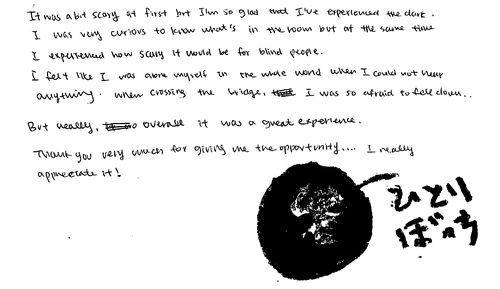 It was a bit scary at first but I'm so glad that I've experienced the dark.
I was very curious to know what's in the room but at the same time
I experienced how scary it would be for blind people.
I felt like I was alone myself in the wide world when I could not hear
anything. When crossing the bridge, I was so afraid to fell down..
But really, overall it was a great experience.
Thank you very much for giving me the opportunity.... I really
appreciate it!
ひとり
ぼっち